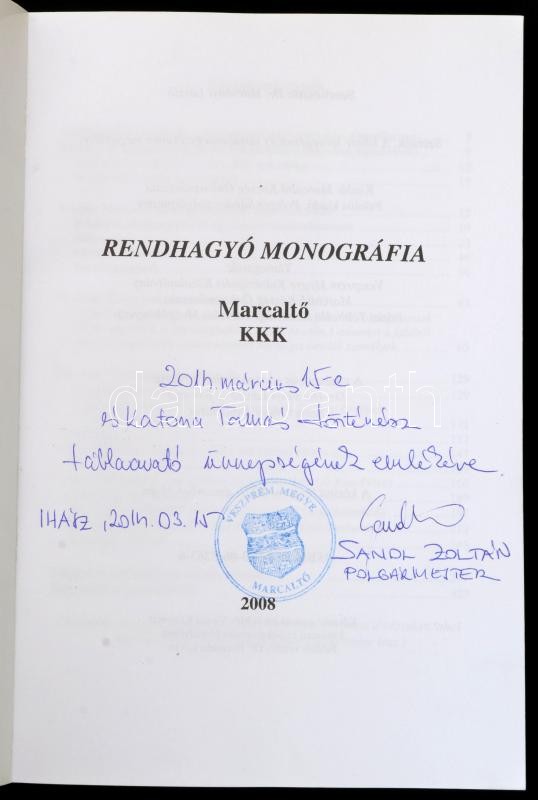 RENDHAGYÓ MONOGRÁFIA
Marcaltő
KKK
2014. március 15-e
és Katona Tamás történész
táblaavató ünnepségének emlékére.
IHÁSZ, 2014.03.15
VESZPRÉM MEGYE
MARCALTŐ
SANDL ZOLTÁN
POLGÁRMESTER
2008
darabanth